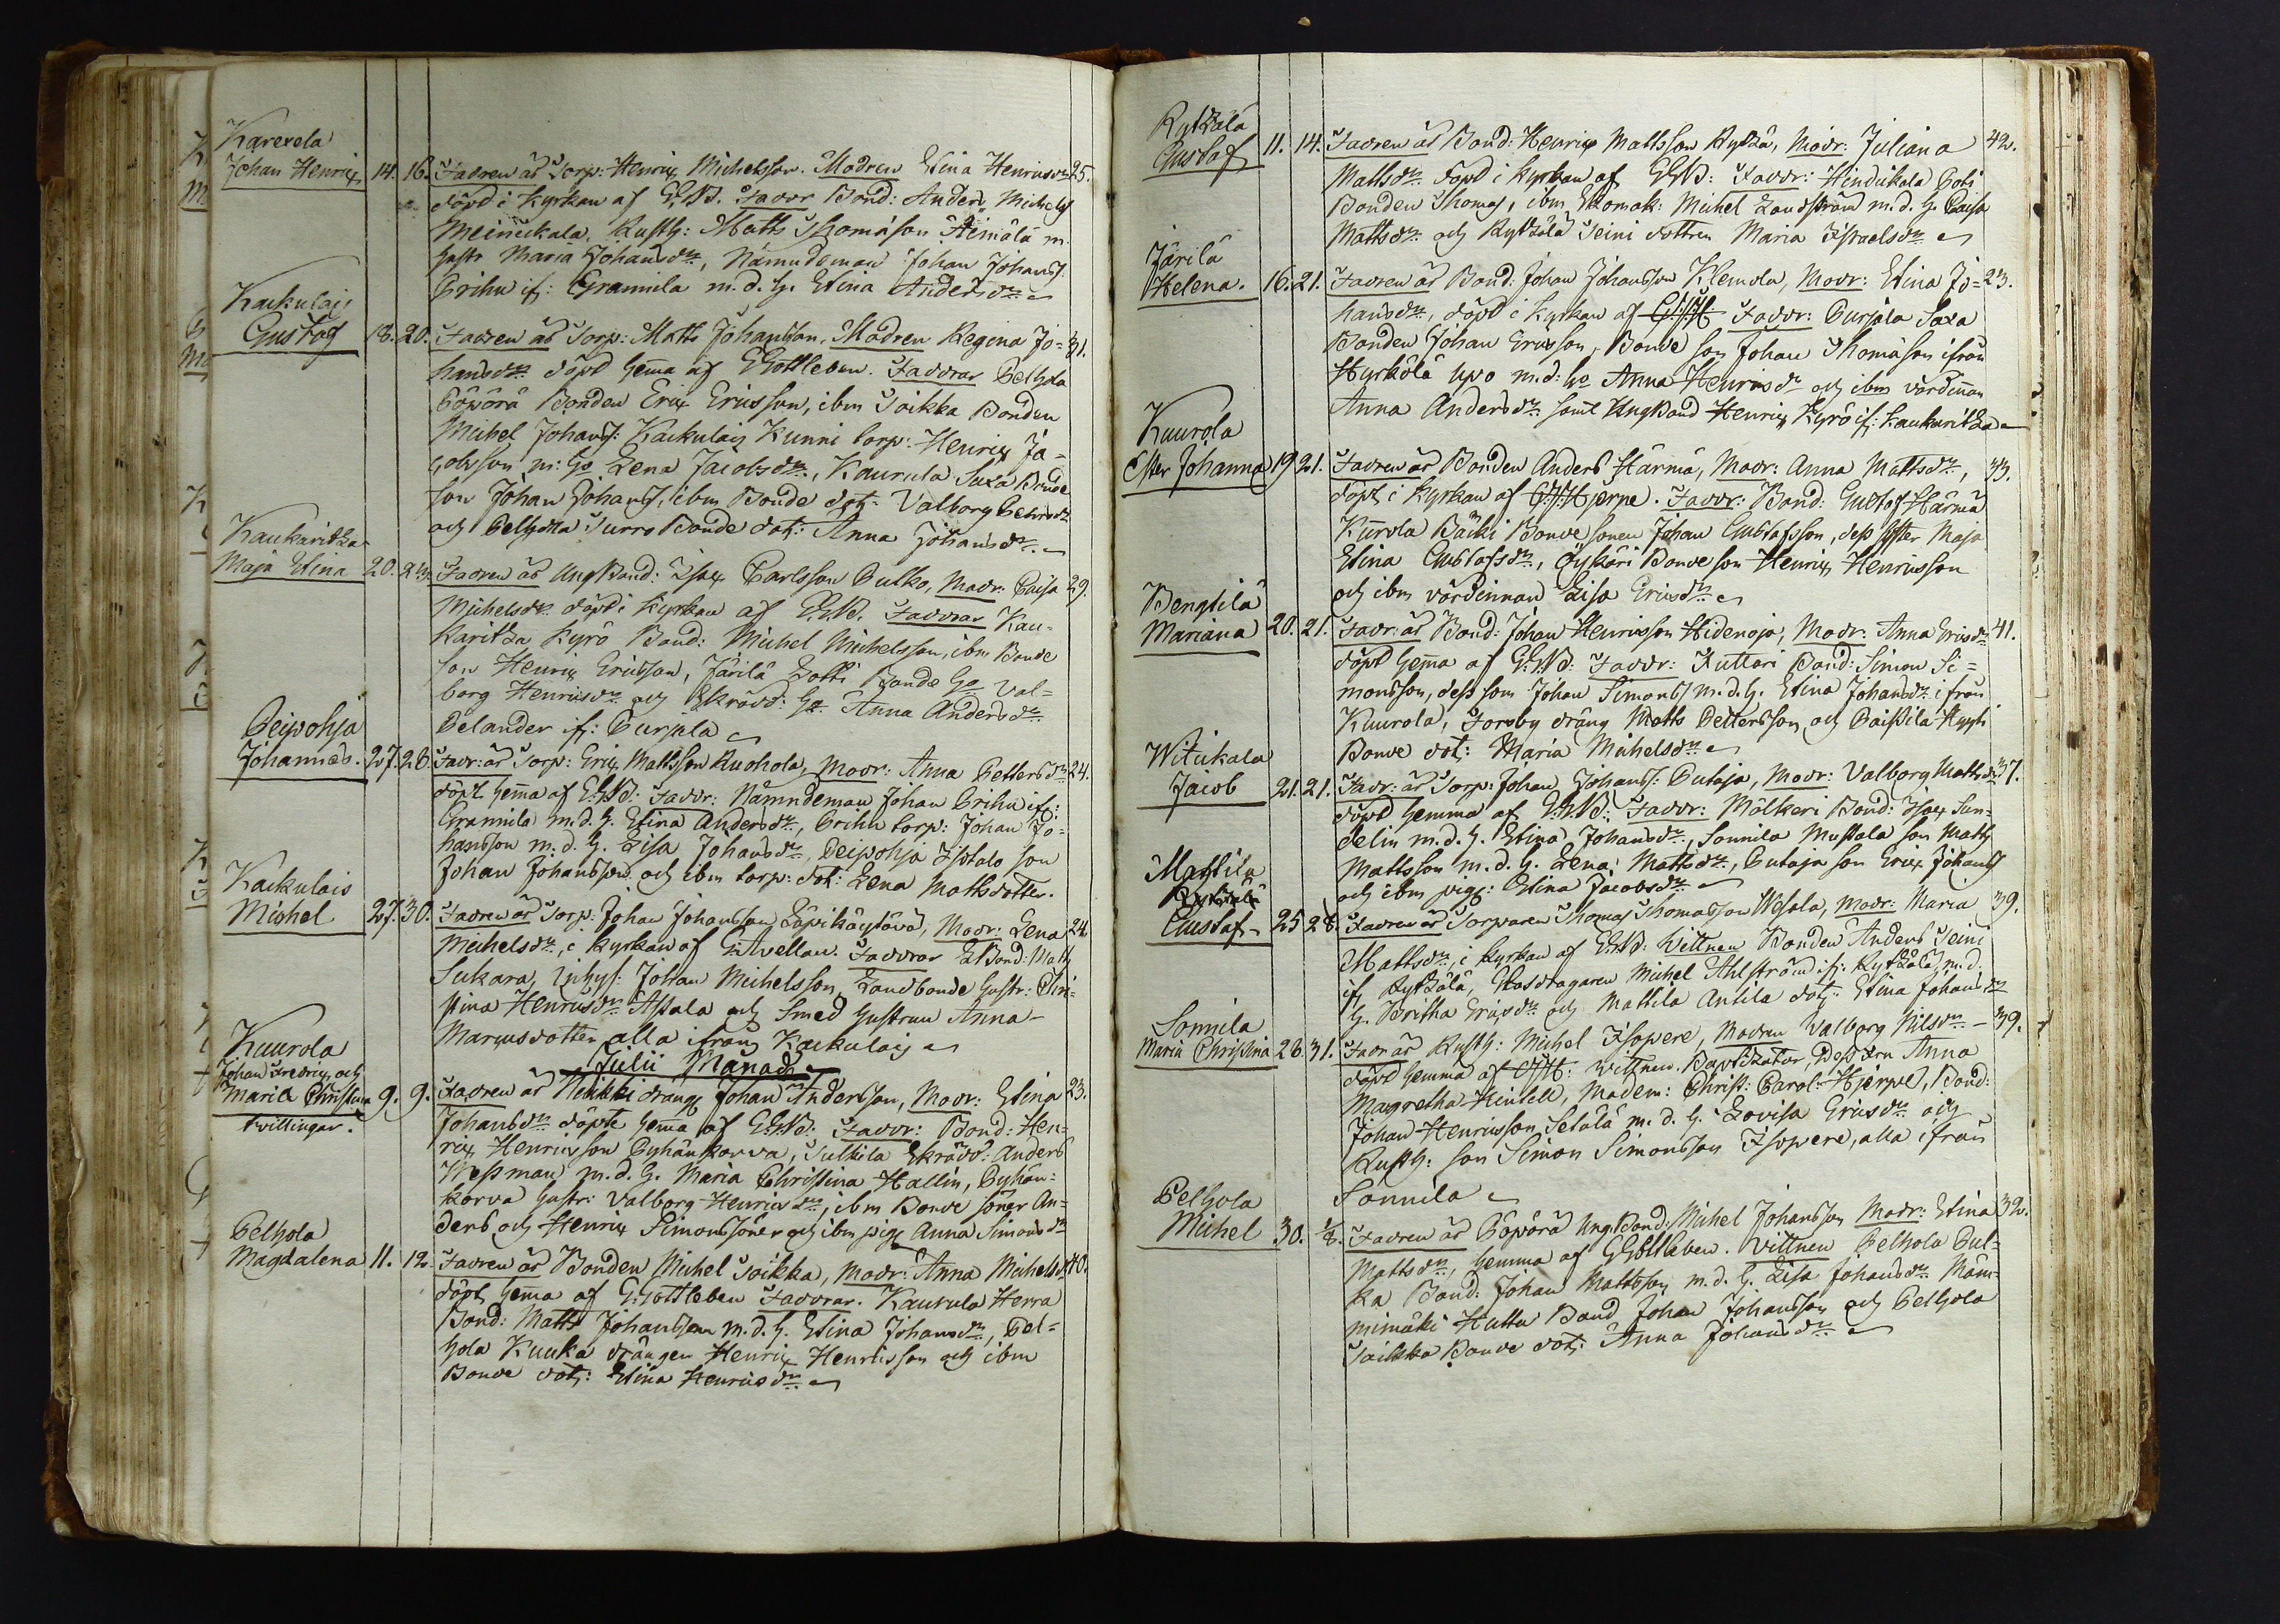 Karevela
Johan Henric 14. 16. Fadren är Torp: Henric Michelsson. Modren Stina Henricsdr 25.
döpt i Kyrkan af GGB. Faddr Bond: Anders Michelss
Meinickala, Rusth: Matts Thomasson Heinälä m.
hustr Maria Johansdr, Nämndeman Johan Johanss
Prihu if: Grannila m. d. h. Stina Andersdr
Kackulais
Gustaf 18. 20. Fadren är Torp: Matts Johansson, Modren Regina Jo= 31.
hansdr döpt hema af GGottleben. Faddrar Pelhola
Bonden Eric Ericsson, ibm Soikka Bonden
Michel Johanss: Kackulais Kunni torp: Henric Ja=
cobsson m: ho Lena Jacobsdr, Kaurula Saxa Bonde
son Johan Johanss, ibm Bonde dot: Valborg
och Pelhola Turro Bonde dot: Anna Johansdr
Kaukaritza
Maja Stina 20. 23. Fadren är Ung Bond: Isac Carlsson Putko, Modr: Caisa 29.
Michelsdr döpt i Kyrkan af GGB. Faddrar Kau=
karitza Kyrö Bond: Michel Michelsson, ibm Bonde
son Henric Ericsson, Järilä Sotti Bonde ho Val=
borg Henricsdr och Skrädd: ho Anna Andersdr
Delander if: Purpla
Peipohja
Johannes. 27. 28. Fadr: är Torp: Eric Mattsson Ruohola, Modr: Anna Pettersdr 24.
döpt hema af GGB: Faddr: Nämndeman Johan Prihu if:
Grannila m. d. h. Stina Andersdr, Prihu torp: Johan Jo=
hansson m. d. h. Lisa Johansdr, Peipohja Isotalo son
Johan Johansson och ibm torp: dot: Lena Mattsdotter.
Kackulais
Michel 27. 30. Fadren är Torp: Johan Johansson Läpikäytävä, Modr: Lena 24.
Michelsdr, i Kyrkan af G:Avellan. Faddrar Bond: Matts
Sukara, Inhys: Johan Michelsson, Landbonde hustr: Chri=
stina Henricsdr Assala och Smed hustrun Anna
Marcusdotter alla ifrån Kackulais
Julii Månad
Kuurola
Johan Fredric, och
Maria Christina 9. 9. Fadren är Heikki dräng Johan Andersson, Modr: Stina 23.
twillingar. Johansdr döpte hema af GGB: Faddr: Bond: Hen=
ric Henricsson Pyhänkorva, Sulkila Skrädd: Anders
Wessman m. d. h. Maria Christina Hallin, Pyhän=
korva hustr: Valborg Henricsdr, ibm Bonde söner An=
ders och Henric Simonssöner och ibm pig: Anna Simonsdr
Pelhola
Magdalena 11. 12. Fadren är Bonden Michel Soikka, Modr: Anna Michelsdr 40.
döpt hema af G:Gottleben Faddrar. Kaurula Herra
Bond: Matts Johansson m. d. h. Stina Johansdr, Pel=
hola Kuuka drängen Henric Henricsson och ibm
Bonde dot: Stina Henricsdr
Rytzälä
Gustaf 11. 14. Fadren är Bond: Henric Mattsson Rytzä, Modr: Juliana 42.
Mattsdr. Döpt i Kyrkan af GGB: Faddr: Hindikala
Bonden Thomas, ibm Skomak: Michel Landström m. d. h. Caisa
Mattsdr och Rytzälä Seini dottren Maria Israelsdr
Järilä
Helena. 16. 21. Fadren är Bond: Johan Johansson Klemola, Modr: Stina Jo= 23.
hansdr, döpt i Kyrkan af Faddr: Purjala Saxa
Bonden Johan Ericsson, Bonde son Johan Thomasson ifrån
Hyrkölä m. d: ho Anna Henricsdr och ibm värdinan
Anna Andersdr samt Ung Bond Henric Kyrö if: Kaukaritza
Kuurola
Ester Johanna 19 21. Fadren är Bonden Anders Härmä, Modr: Anna Mattsdr, 33.
döpt i Kyrkan af Hjerpe. Faddr: Bond: Gustaf Härmä
Kurola Bäcki Bonde sonen Johan Gustafsson, dess syster Maja
Stina Gustafsdr, Öykäri Bonde son Henric Henricsson
och ibm värdinnan Lisa Ericsdr
Bengtilä
Mariana 20. 21. Fadr: är Bond: Johan Henricsson Hidenoja, Modr: Anna Ericsdr 41.
döpt hema af GGB: Faddr: Kuttari Bond: Simon Si=
monsson, dess son Johan Simonss m. d. h. Stina Johansdr ifrån
Kuurola, Forsby dräng Matts Pettersson och Paistila Hyyti
Bonde dot: Maria Michelsdr
Witikala
Jacob 21. 21. Fadr: är Torp: Johan Johanss: Putaja, Modr: Valborg Mattsdr 37.
döpt hemma af GGB: Faddr: Mölkeri Bond: Isac Sun=
delin m. d. h. Stina Johansdr, Sonnila Mussala son Matts
Mattsson m. d. h. Lena Mattsdr, Putaja son Eric Johanss
och ibm pig: Stina Jacobsdr
Mattila
Rytzälä
Gustaf 25 28. Fadren är Torparen Thomas Thomasson Wesala, Modr: Maria 39.
Mattsdr, i Kyrkan af GGB: Wittnen Bonden Anders Seini
if Rytzälä, Glasdragaren Michel Ahlström if: Rytzälä, m. d.
h. Britha Ericsdr och Mattila Antila dot: Stina Johansdr
Sonnila
Maria Christina 28. 31. Fadr är Rusth: Michel Isopere, Modren Valborg Nilsdr 39.
döpt hemma af Wittnen. Baptizator, Dess Fru Anna
Magretha Hintell, Madem: Christ: Carol: Hjerpe, Bond:
Johan Henricsson Setälä m. d. h. Lovisa Ericsdr och
Rusth: son Simon Simonsson Isopere, alla ifrån
Sonnila
Pelhola
Michel 30. 1/8. Fadren är Ung Bond: Michel Johansson Modr: Stina 32.
Mattsdr, hemma af GGottleben. Wittnen Pelhola Pul=
ka Bond: Johan Mattsson m. d. h. Lisa Johansdr Mäm=
mimäki Huttu Bond Johan Johansson och Pelhola
Soikka Bonde dot: Anna Johansdr